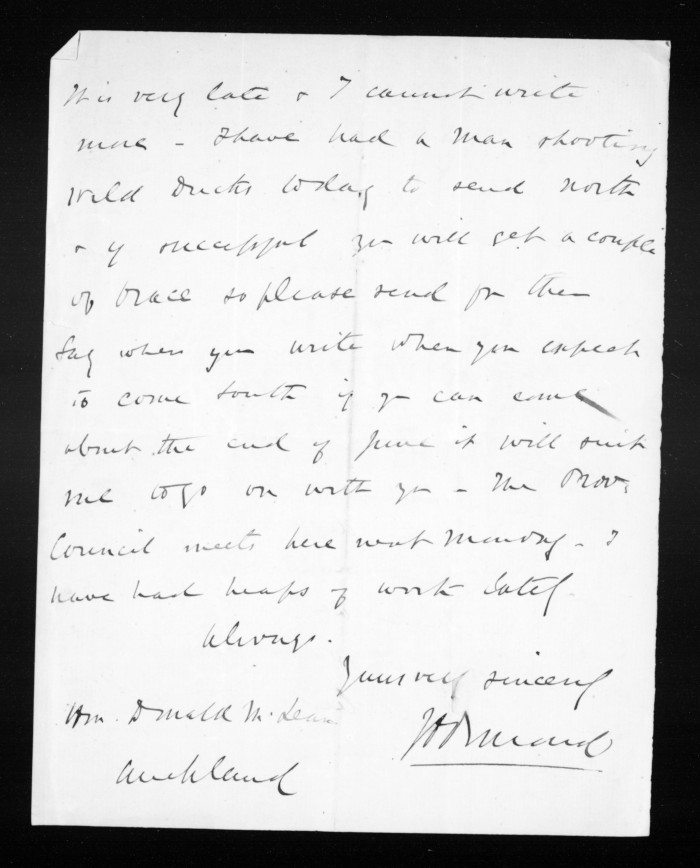 It is very late & I cannot write
more - I have had a man shooting
Wild Ducks today to send north
& if successful you will get a couple
of brace so please send for them
Say when you write when you expect
to come South if you can come
about the end of June it will suit
me to go on with you - The Prov.
Council meets here next Monday - I
have had heaps of work lately
Always.
Yours very sincerely
JD Ormond
Hon. Donald McLean
Auckland